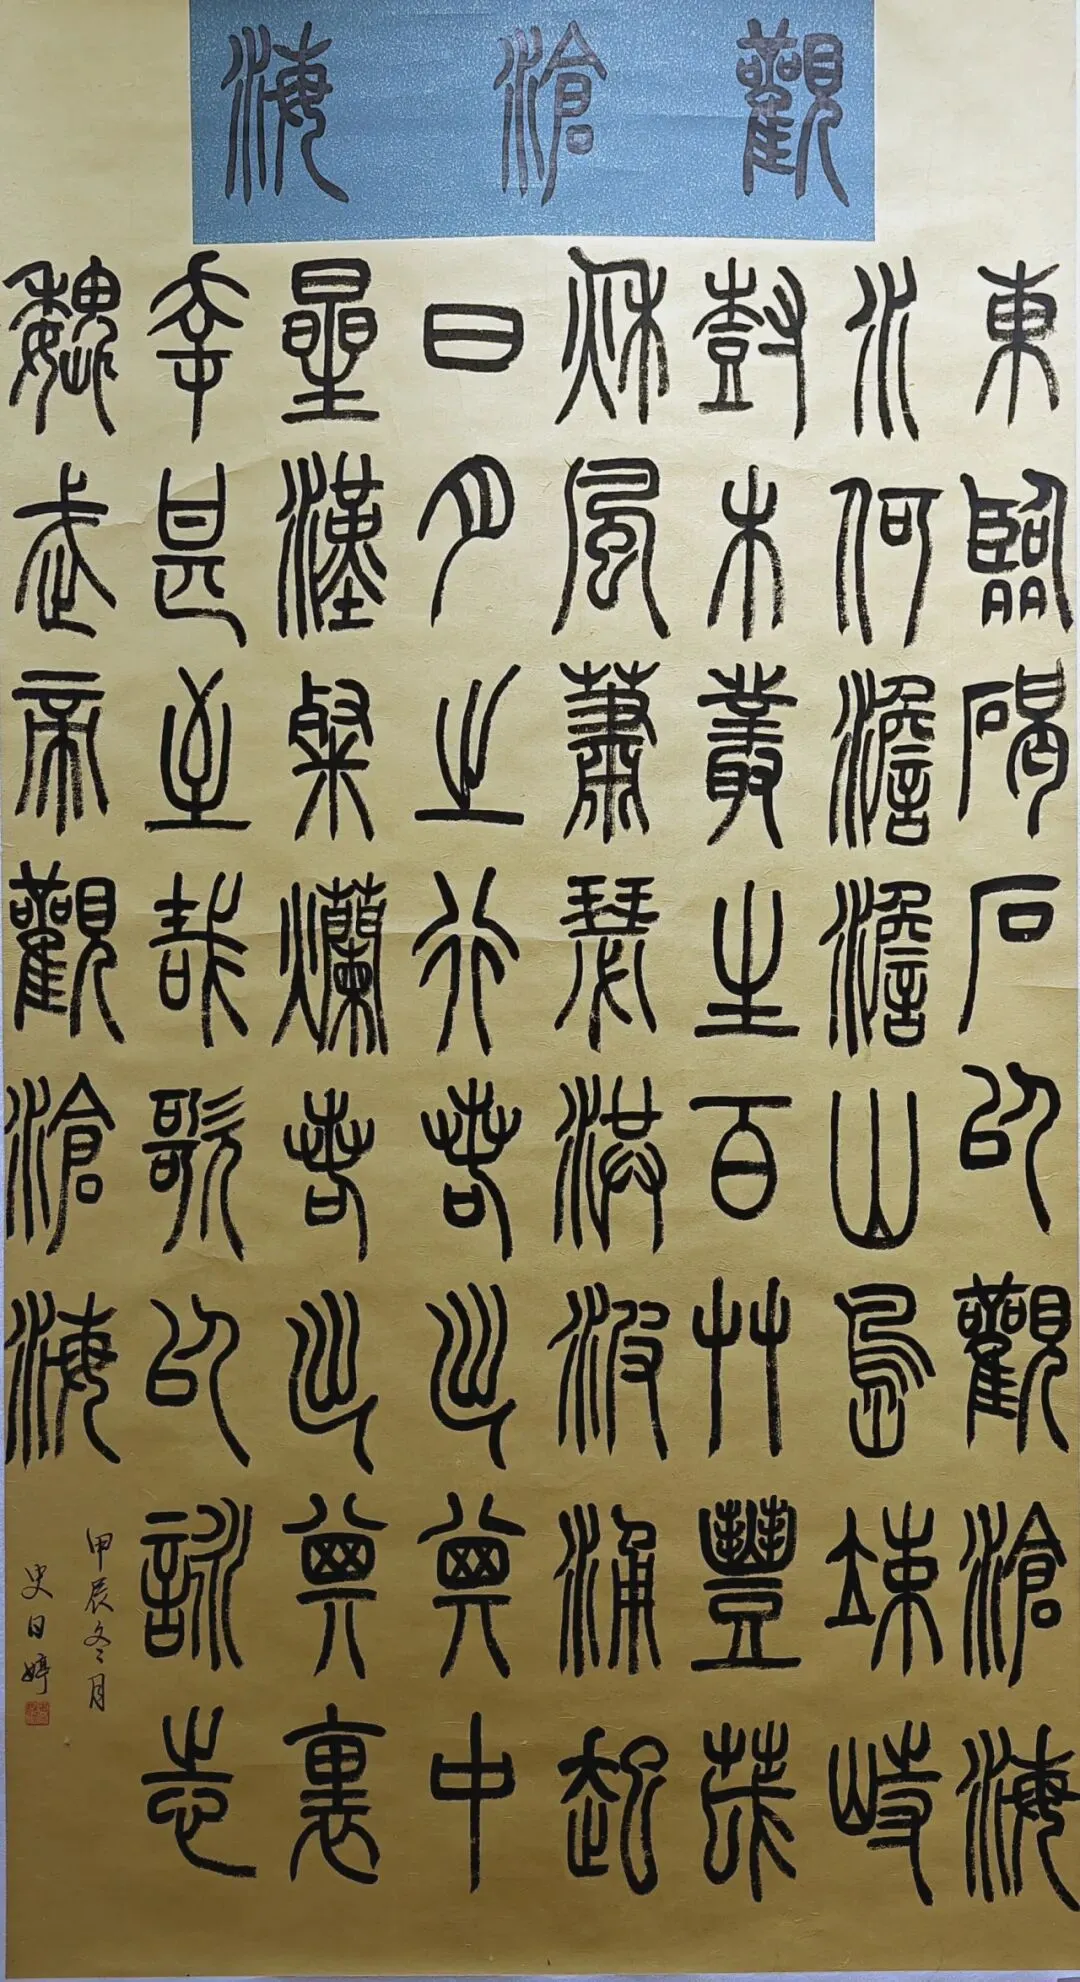 觀滄海
東臨碣石以觀滄海
水何澹澹山島竦峙
樹木叢生百草豐茂
秋風蕭瑟洪波涌起
日月之行若出其中
星漢粲爛若出其裏
幸甚至哉歌以詠志
魏武帝觀滄海
甲辰冬月
史日婷